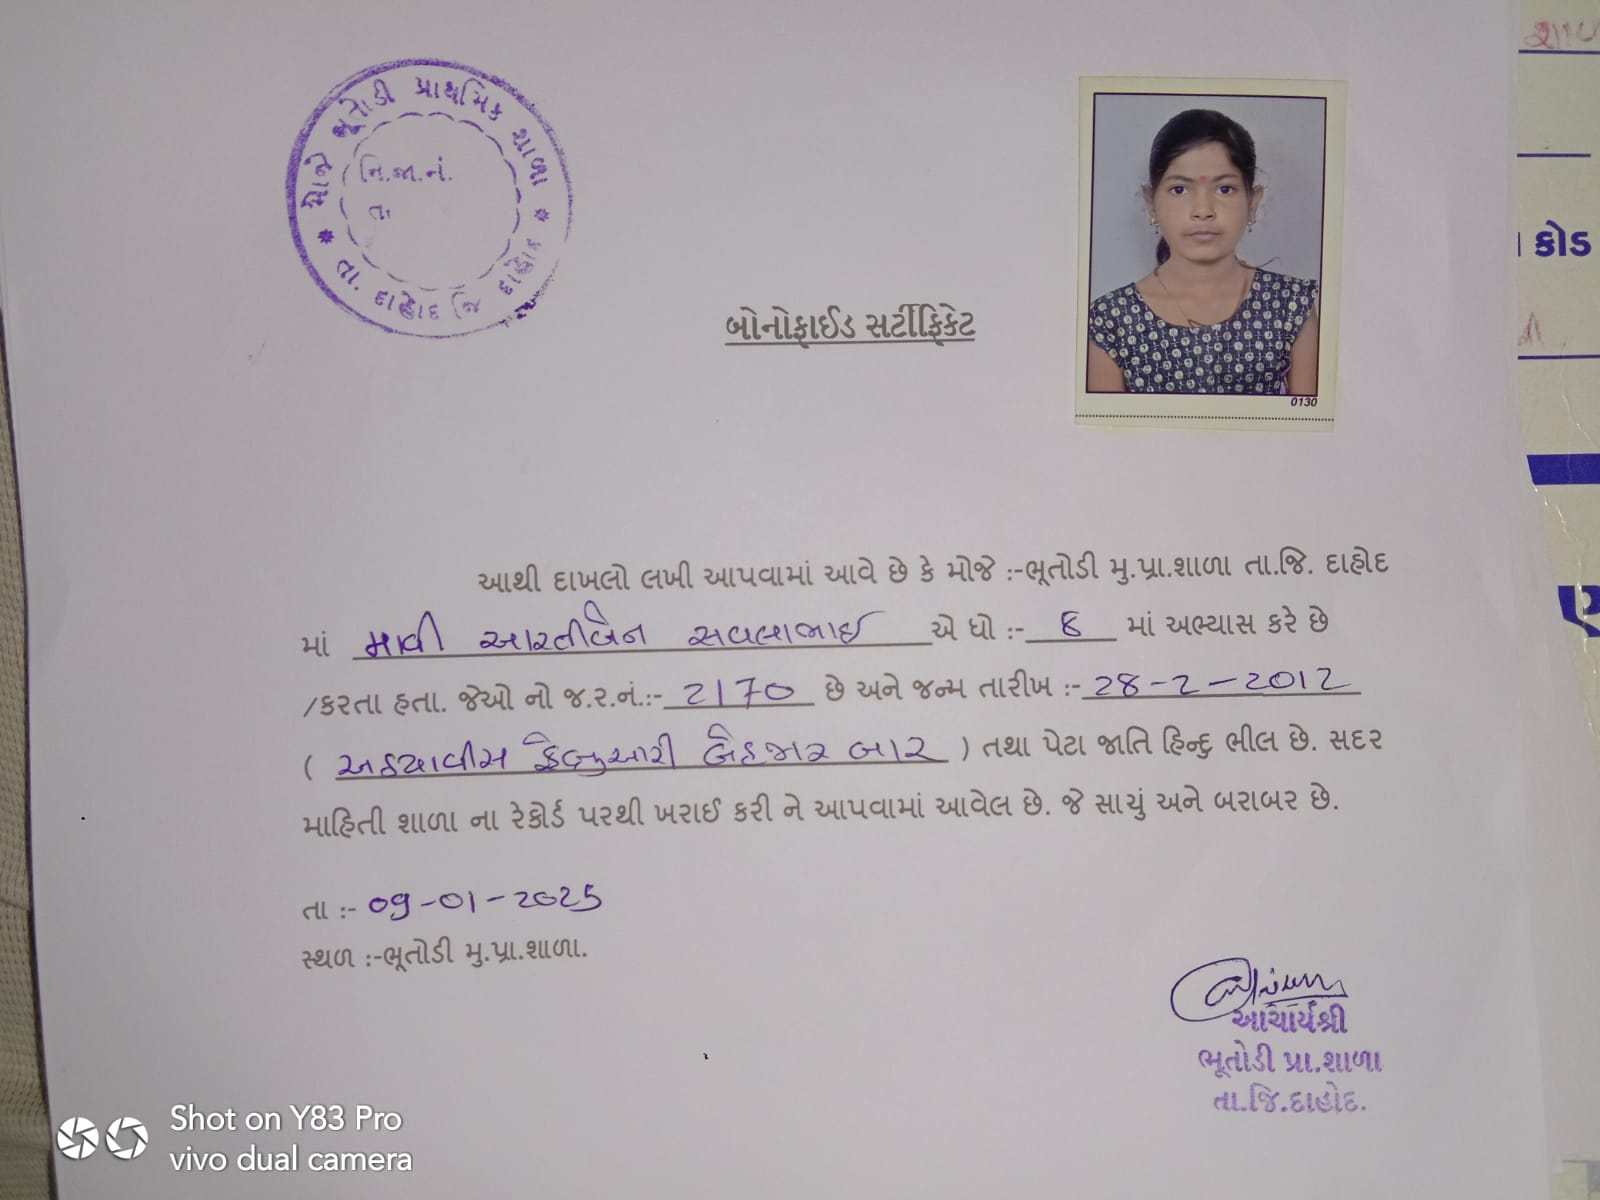 મોજે ભૂતોડી પ્રાથમિક શાળા
નિ.જા.નં.
તા.
* તા. દાહોદ જિ દાહોદ *
0130
બોનોફાઈડ સર્ટીફિકેટ
આથી દાખલો લખી આપવામાં આવે છે કે મોજે :-ભૂતોડી મુ.પ્રા.શાળા તા.જિ. દાહોદ
માં માવી આરતીબેન સવલાભાઈ એ ધો :- 8 માં અભ્યાસ કરે છે
/કરતા હતા. જેઓ નો જ.ર.નં.:- 2170 છે અને જન્મ તારીખ :- 28-2-2012
( અઠયાવીસ ફેબ્રુઆરી બેહજાર બાર ) તથા પેટા જાતિ હિન્દુ ભીલ છે. સદર
માહિતી શાળા ના રેકોર્ડ પરથી ખરાઈ કરી ને આપવામાં આવેલ છે. જે સાચું અને બરાબર છે.
તા :- 09-01-2025
સ્થળ :-ભૂતોડી મુ.પ્રા.શાળા.
આચાર્યશ્રી
ભૂતોડી પ્રા.શાળા
તા.જિ.દાહોદ.
કોડ
Shot on Y83 Pro
vivo dual camera